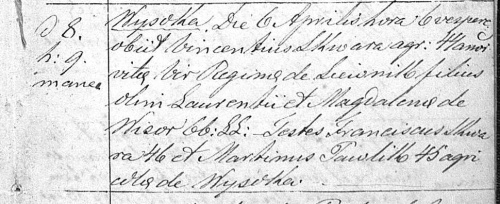 d 8.
h: 9.
manea
Wysoka. Die 6 Aprilis, hora 6 vespere
obiit Vincentius Skwara agr: 44 anoi
vitæ Vir Reginæ de filius
olim Laurentii et Magdalenæ de
Wisor Cb: LL: Testes Franciscus Skwa
ra 46 et Martinus Pawlik 45 agri
colæ de Wysoka.